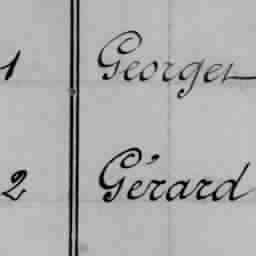 1 Georget
2 Gérard